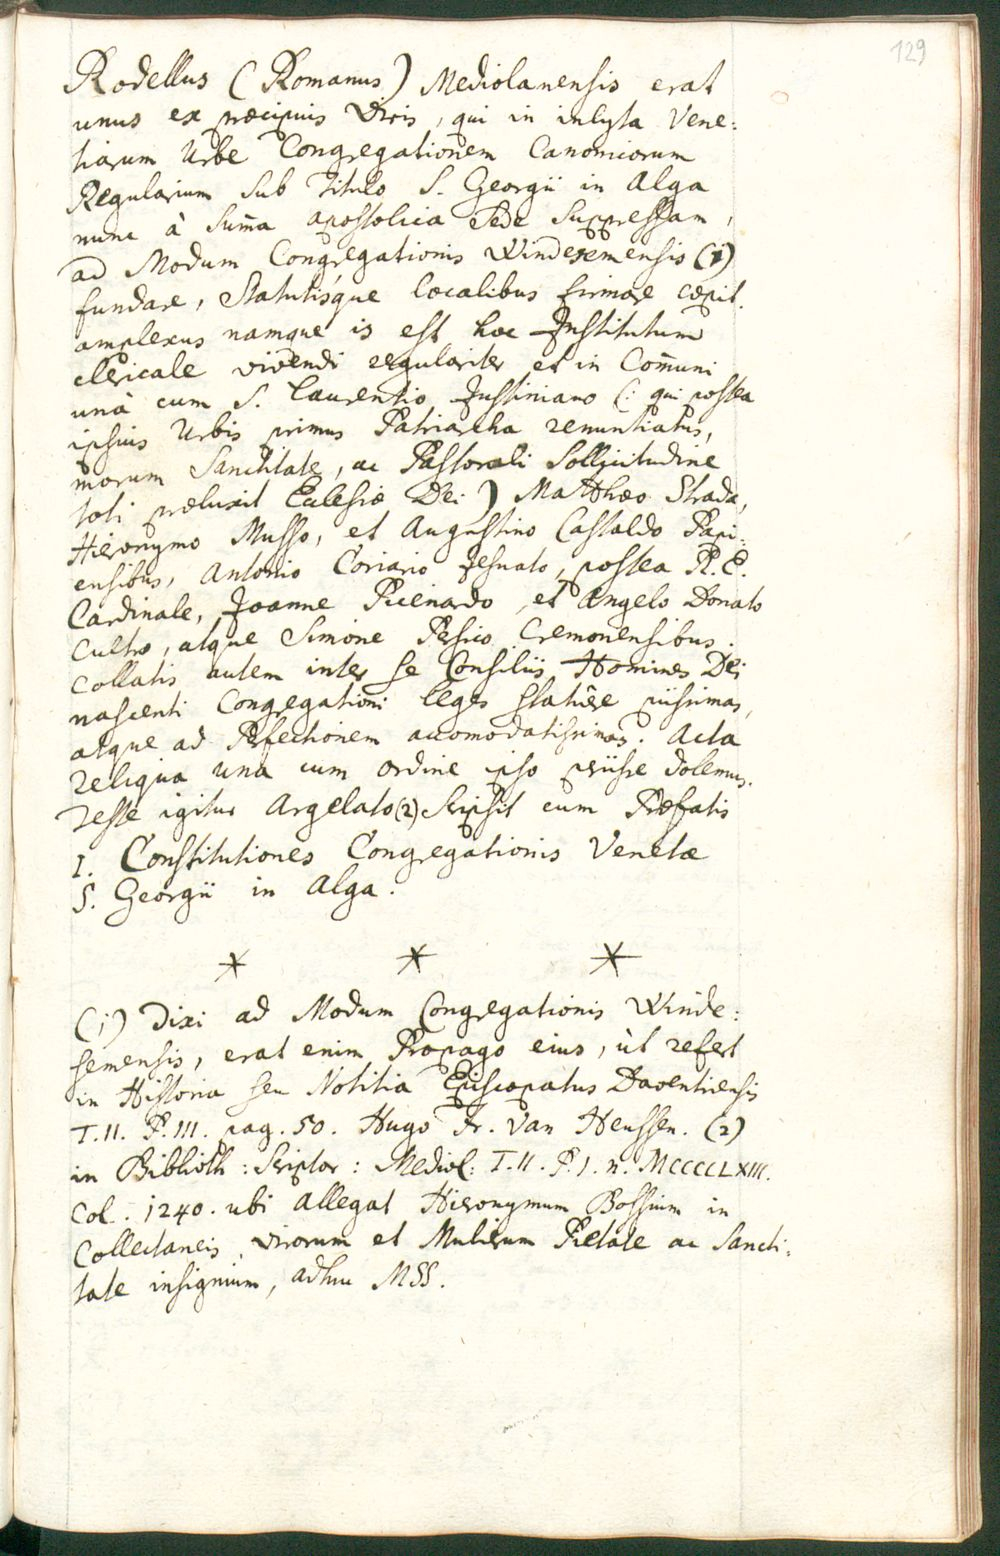 129
Rodellus (Romanus) Mediolanensis erat
unus ex præcipuis Viris, qui in inlyta Vene:
tiarum Urbe Congregationem Canonicorum
Regularium sub Titulo S. Georgii in Alga
nunc à Sum̄a apostolica Sede Suppressam,
ad Modum Congregationis Windesemensis (1)
fundare, Statutisque localibus firmare cœpit.
amplexus namque is est hoc Institutum
clericale vivendi regulariter et in Com̄uni
unà cum S. Laurentio Justiniano (: qui postea
ipsius Urbis primus Patriarcha renuntiatus,
morum Sanctitate, ac Pastorali Sollicitudine
toti præluxit Eclesiæ Dei) Matthæo Strada,
Hieronymo Musso, et Augustino Castaldo Papi:
ensibus, Antonio Coriario Jesuato, postea R. E.
Cardinale, Joanne Picenardo, et Angelo Donato
Cultro, atque Simone Persico Cremonensibus.
Collatis autem inter se Consiliis Homines Dei
nascenti Congregationi leges statûere piissimas,
atque ad Perfectionem accomodatissimas. Acta
reliqua una cum ordine ipso periisse dolemus.
Teste igitur Argelato (2) Scripsit cum Præfatis
I. Constitutiones Congregationis Venetæ
S. Georgii in Alga.
(1) Dixi ad Modum Congregationis Winde:
semensis, erat enim Propago eius, ùt refert
in Historia seu Notitia Episcopatus Daventriensis
T.II. P.III. pag. 50. Hugo Fr. Van Heussen. (2)
in Biblioth: Scriptor: Mediol: T.II. P.I. n. MCCCCLXIII.
Col. 1240. ubi allegat Hieronymum Bossium in
Collectaneis virorum et Mulierum Pietate ac Sancti:
tate insignium, adhuc MSS.